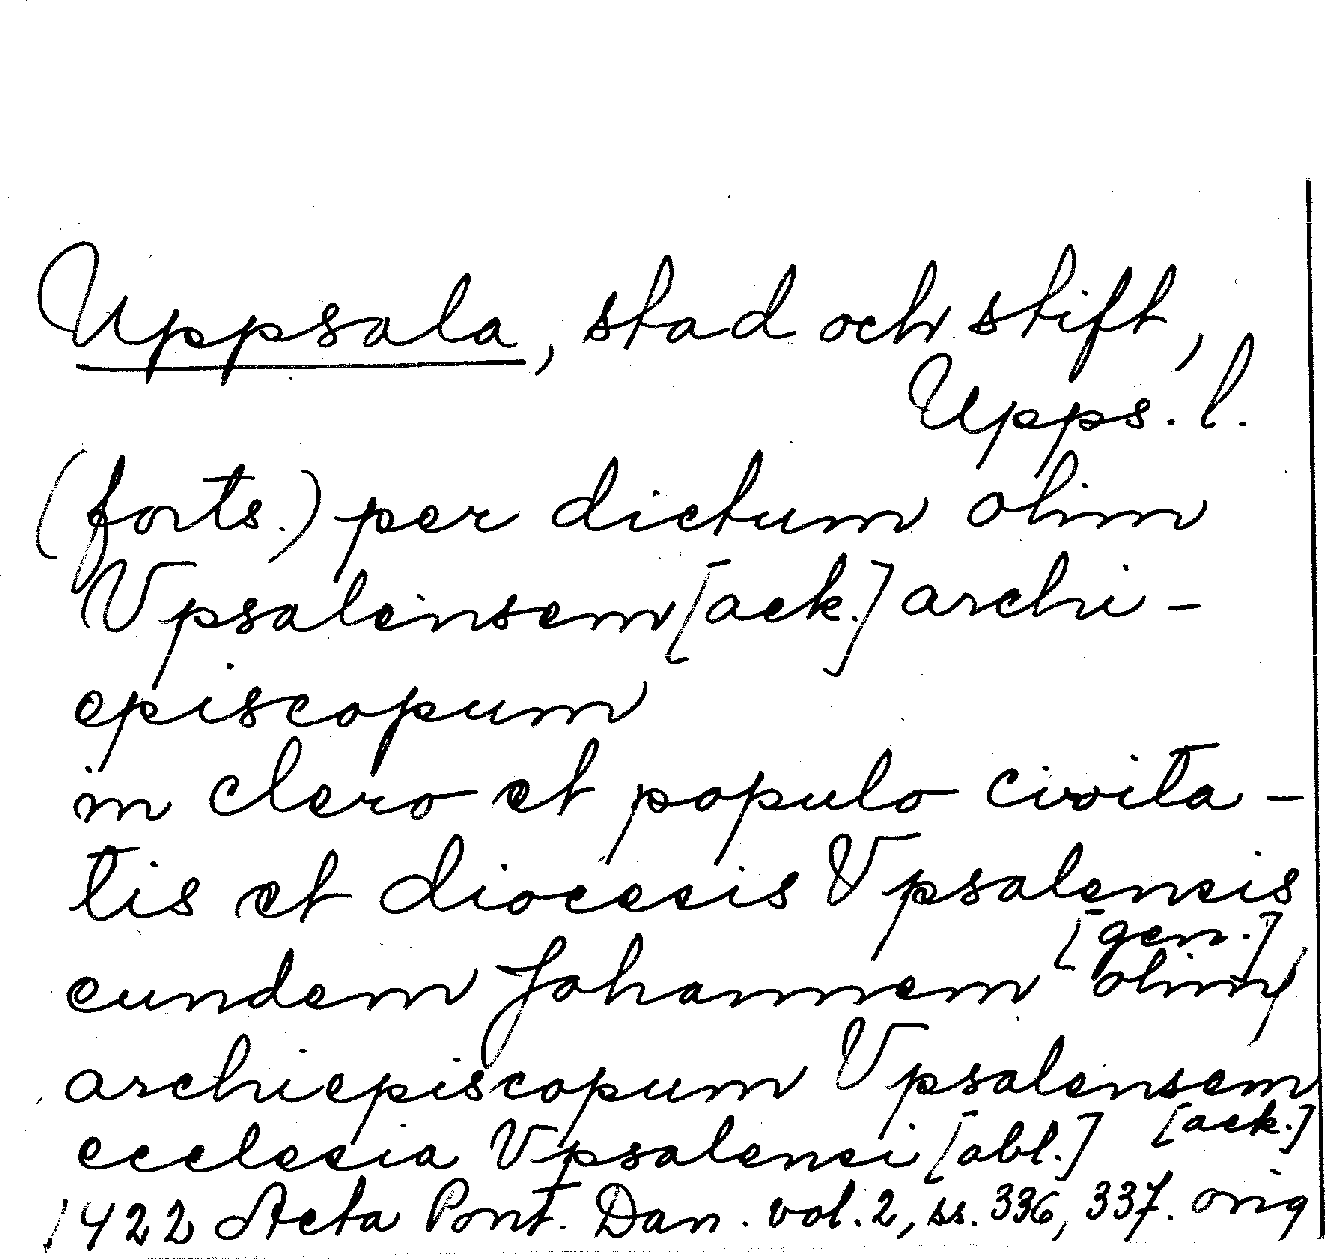 Uppsala, stad och stift,
Upps. l.
(forts.) per dictum olim
Vpsalensem [ack.] archi-
episcopum
in clero et populo civita-
tis et diocesis Vpsalensis
[gen.]
eundem Johannem olim
archiepiscopum Vpsalensem
[ack.]
ecclesia Vpsalensi [abl.]
1422 Acta Pont. Dan. vol. 2, ss. 336, 337. orig